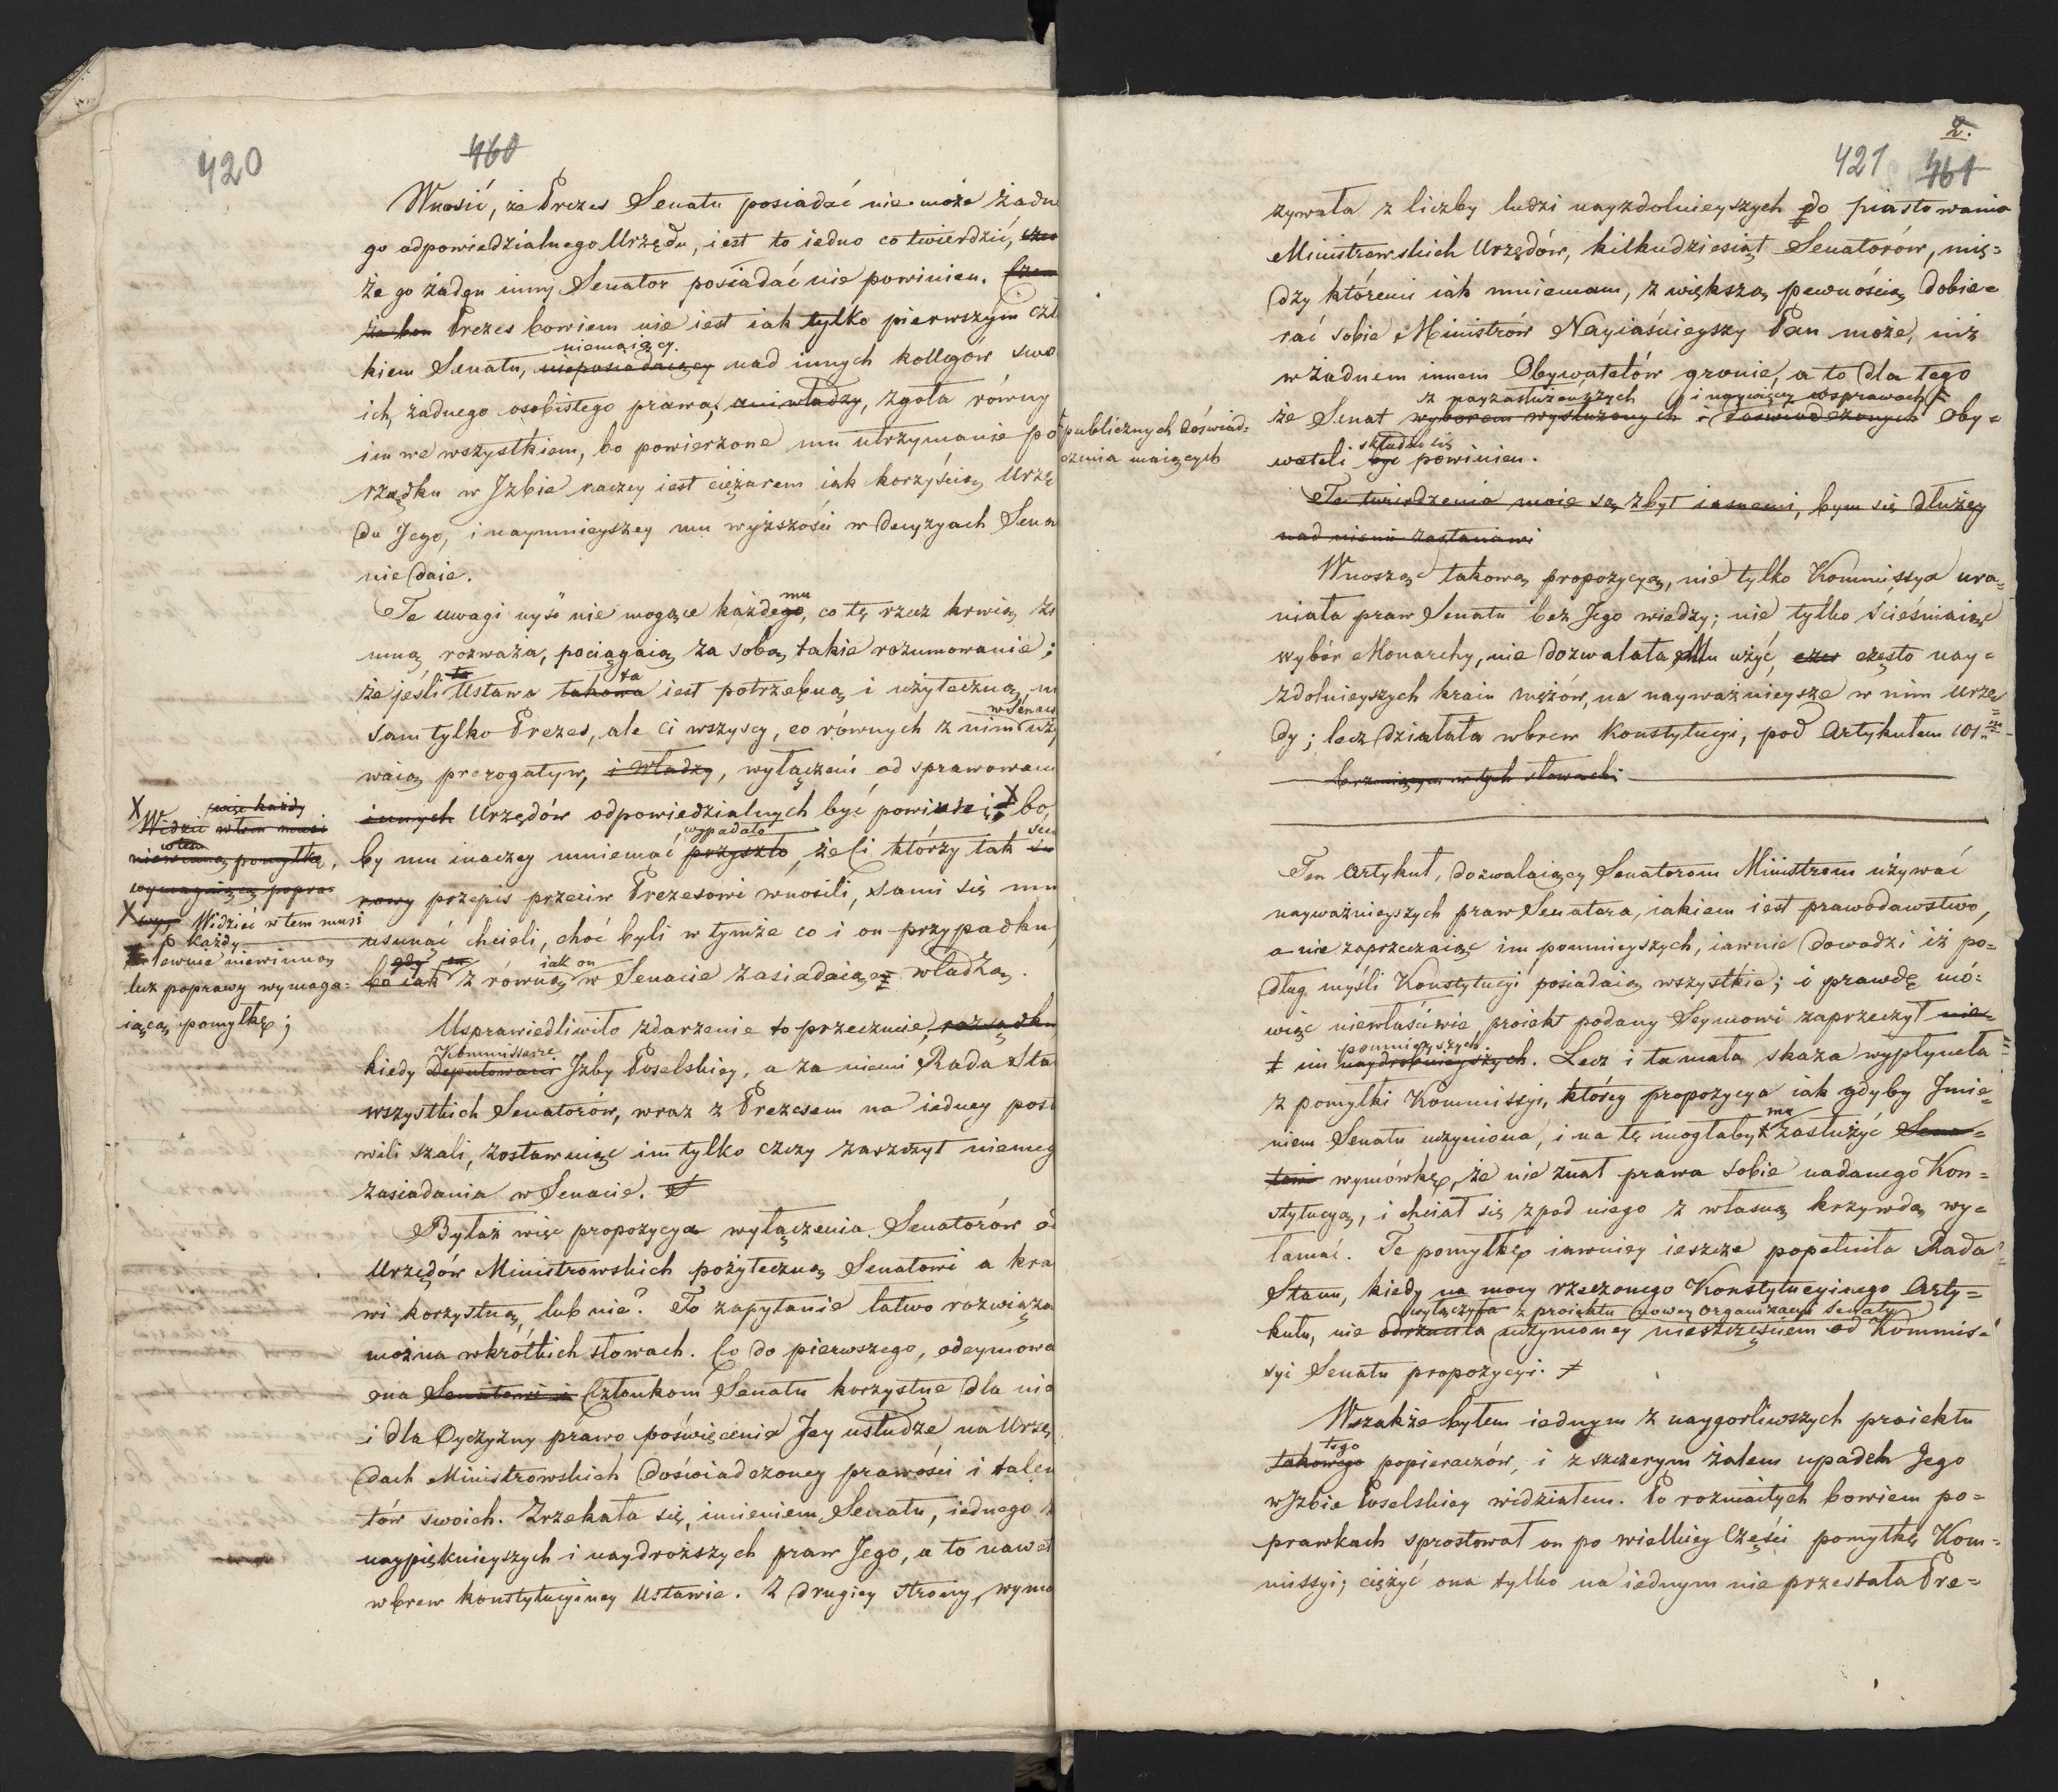 420
460
Wnosić, że Prezes Senatu posiadać nie może żadne
go odpowiedzialnego Urzędu, iest to iedno co twierdzić,
że go żaden inny Senator posiadać nie powinien.
Prezes bowiem nie iest iak tylko pierwszym czł
niemaiący
kiem Senatu, nieposiadaiący nad innych kollegów swo
ich, żadnego osobistego prawa, ani władzy, zgoła równy
im we wszystkiem, bo powierzone mu utrzymanie po
rządku w Izbie raczey iest ciężarem iak korzyścią Urzę
du Jego, i naymnieyszey mu wyższości w decyzyach Sena
nie daie.
mu
Te uwagi uyść nie mogące każdego, co tę rzecz krwią zi
mną rozważa, pociągaią za sobą takie rozumowanie;
ta
że jeśli Ustawa takowa iest potrzebną i użyteczną, ni
w Senacie
sam tylko Prezes, ale ci wszyscy, co równych z nim uży
waią prerogatyw, i władzy, wyłączeni od sprawowani
innych Urzędów odpowiedzialnych być powinni; X bo,
wypadało
by mu inaczey mniemać przyszło, że ci którzy tak su
rowy przepis przeciw Prezesowi wnosili, sami się mu
usunąć chcieli, choć byli w tymże co i on przypadku,
gdyż iak on
bo iak z równą w Senacie zasiadaią władzą.
X więc każdy
Widzieć w tem musi
w tem
niewinną pomyłkę,
wymagaiącą popra=
X wy, Widzieć w tem musi
każdy
pewnie niewinną
lecz poprawy wymaga=
iącą pomyłkę;
Usprawiedliwiło zdarzenie to przeczucie, rozsądku
Kommissarze
kiedy Deputowani Izby Poselskiey, a za niemi Rada Sta
wszystkich Senatorów, wraz z Prezesem na iedney posta
wili szali, zostawuiąc im tylko czczy zaszczyt niemeg
zasiadania w Senacie.
Byłaż więc propozycya wyłączenia Senatorów od
Urzędów Ministrowskich pożyteczną Senatowi a kra
wi korzystną, lub nie? To zapytanie łatwo rozwiąza
można w krótkich słowach. Co do pierwszego, odeymowa
ona Senatowi i Członkom Senatu korzystne dla nic
i dla Oyczyzny prawo poświęcenia Jey usłudze na Urzę
dach Ministrowskich doświadczoney prawości i talen
tów swoich. Zrzekała się, imieniem Senatu, iednego z
naypięknieyszych i naydroższych praw Jego, a to nawet
wbrew konstytucyiney Ustawie. Z drugiey strony, wymo
2.
421 461
zywała z liczby ludzi nayzdolnieyszych do piastowania
Ministrowskich Urzędów, kilkudziesiąt Senatorów, mię=
dzy któremi iak mniemam, z większą pewnością dobie=
rać sobie Ministrów Nayiaśnieyszy Pan może, niż
w żadnem innem Obywatelów gronie, a to dla tego
z nayzasłużeńszych i naywięcey w sprawach
że Senat wyborem wysłużonych i doświadczonych Oby=
składać się
wateli być powinien.
publicznych doświad=
czenia maiących
Te twierdzenia moie są zbyt iasnemi, bym się dłużey
nad niemi zastanawi
Wnosząc takową propozycyą, nie tylko Kommissya ura=
niała praw Senatu bez Jego wiedzy; nie tylko ścieśniaiąc
wybór Monarchy, nie dozwalała Mu użyć często nay=
zdolnieyszych kraiu mężów, na nayważnieysze w nim Urzę
dy; lecz działała wbrew Konstytucyi, pod Artykułem 101
brzmiącym w tych słowach:
Ten Artykuł, dozwalaiący Senatorom Ministrom używać
nayważnieyszych praw Senatora, iakiem iest prawodawstwo,
a nie zaprzeczaiąc im pomnieyszych, iawnie dowodzi iż po=
dług myśli Konstytucyi posiadaią wszystkie; i prawdę mó=
wiąc niewłaściwie, proiekt podany Seymowi zaprzeczył nie=
pomnieyszych
im naydrobnieyszych. Lecz i ta mała skaza wypłynęła
z pomyłki Kommissyi, którey propozycya iak gdyby Imie=
mu
niem Senatu uczyniona, i na tę mogłaby zasłużyć Sena=
towi wymówkę, że nie znał prawa sobie nadanego Kon=
stytucyą, i chciał się z pod niego z własną krzywdą wy=
łamać. Te pomyłkę iawniey ieszcze popełniła Rada
Stanu, kiedy na mocy rzeczonego Konstytucyinego Arty=
wyłączyła z proiektu nowey organizacyi Senatu
kułu, nie odrzuciła uczynioney nieszczęściem od Kommis=
syi Senatu propozycyi.
Wszakże byłem iednym z naygorliwszych proiektu
tego
takowego popieraczów, i z szczerym żalem upadek Jego
w Izbie Poselskiey widziałem. Po rozmaitych bowiem po=
prawkach sprostował on po wielkiey Części pomyłkę Kom=
missyi; ciężyć ona tylko na iednym nie przestała Pre=